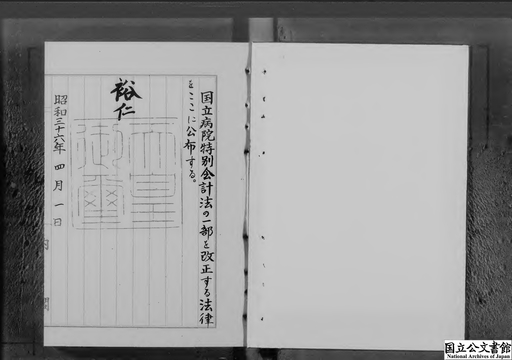 国立病院特別会計法の一部を改正する法律
をここに公布する。
裕仁
天皇御璽
昭和三十六年四月一日
内閣
国立公文書館
National Archives of Japan